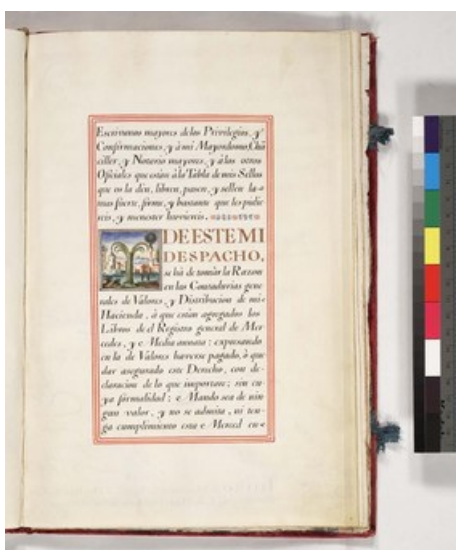 Escrivanos mayores delos Privilegios, y
Confirmaciones, y à mi Mayordomo, Chã
ciller, y Notario mayores, y àlas otros
Oficiales que estàn àla Tabla de mis Sellos
que os la dèn, libren, pasen, y sellen la
mas fuerte, firme, y bastante que les pidie
reis, y menester huviereis.
DE ESTE MI
DESPACHO,
se hà de tomàr la Razon
en las Contadurias gene
rales de Valores, y Distribucion de mi
Hacienda, à que estàn agregados los
Libros de el Registro general de Mer
cedes, y Media annata: expresando
en la de Valores haverse pagado, ò que
dar asegurado este Derecho, con de
claracion de lo que importare; sin cu
ya formalidad; Mando sea de nin
gun valor, y no se admita, ni ten
ga cumplimiento esta Merced en